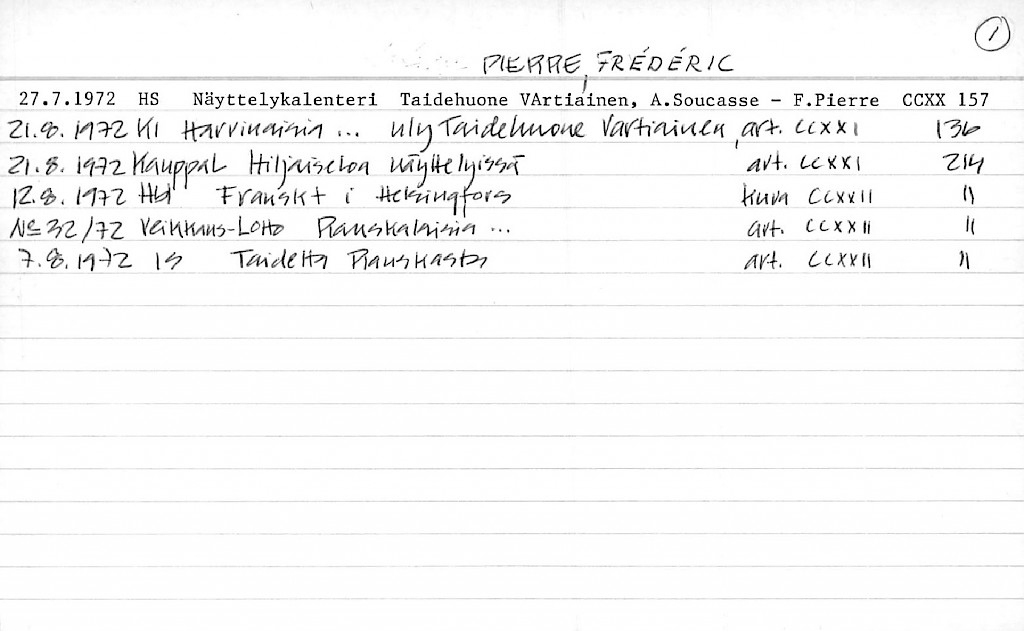 1
PIERRE, FRÉDÉRIC
27.7.1972 HS Näyttelykalenteri Taidehuone VArtiainen, A.Soucasse - F.Pierre CCXX 157
21.8.1972 K1 Harvinaisia ... uly Taidehuone Vartiainen, art. CCXXI 136
21.8.1972 KauppaL Hiljaiseloa näyttelyissä art. CCXXI 214
12.8.1972 Hbl Franskt i Helsingfors kuva CCXXII 11
No 32/72 Veikkaus-Lotto Ranskalaisia ... art. CCXXII 11
7.8.1972 IS Taidetta Ranskasta art. CCXXII 11